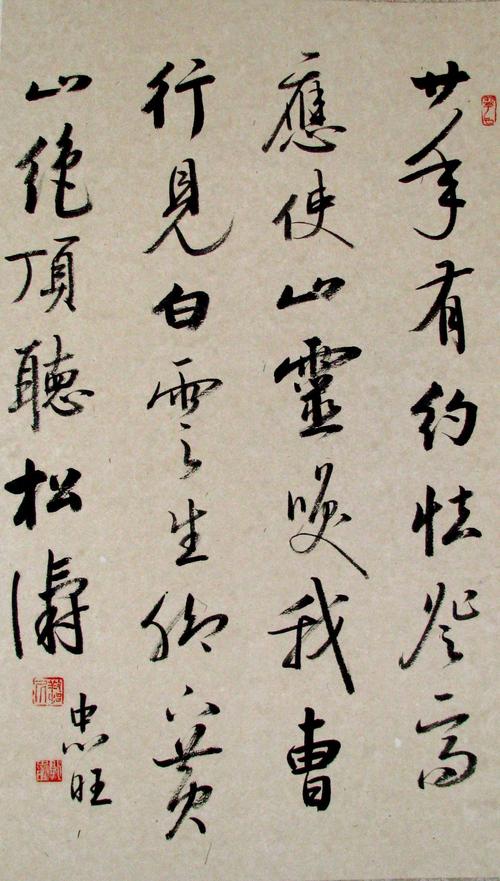 廿年有約怯登高
應使山靈咲我曹
行見白雲生腳下黃
山絕頂聽松濤
忠旺